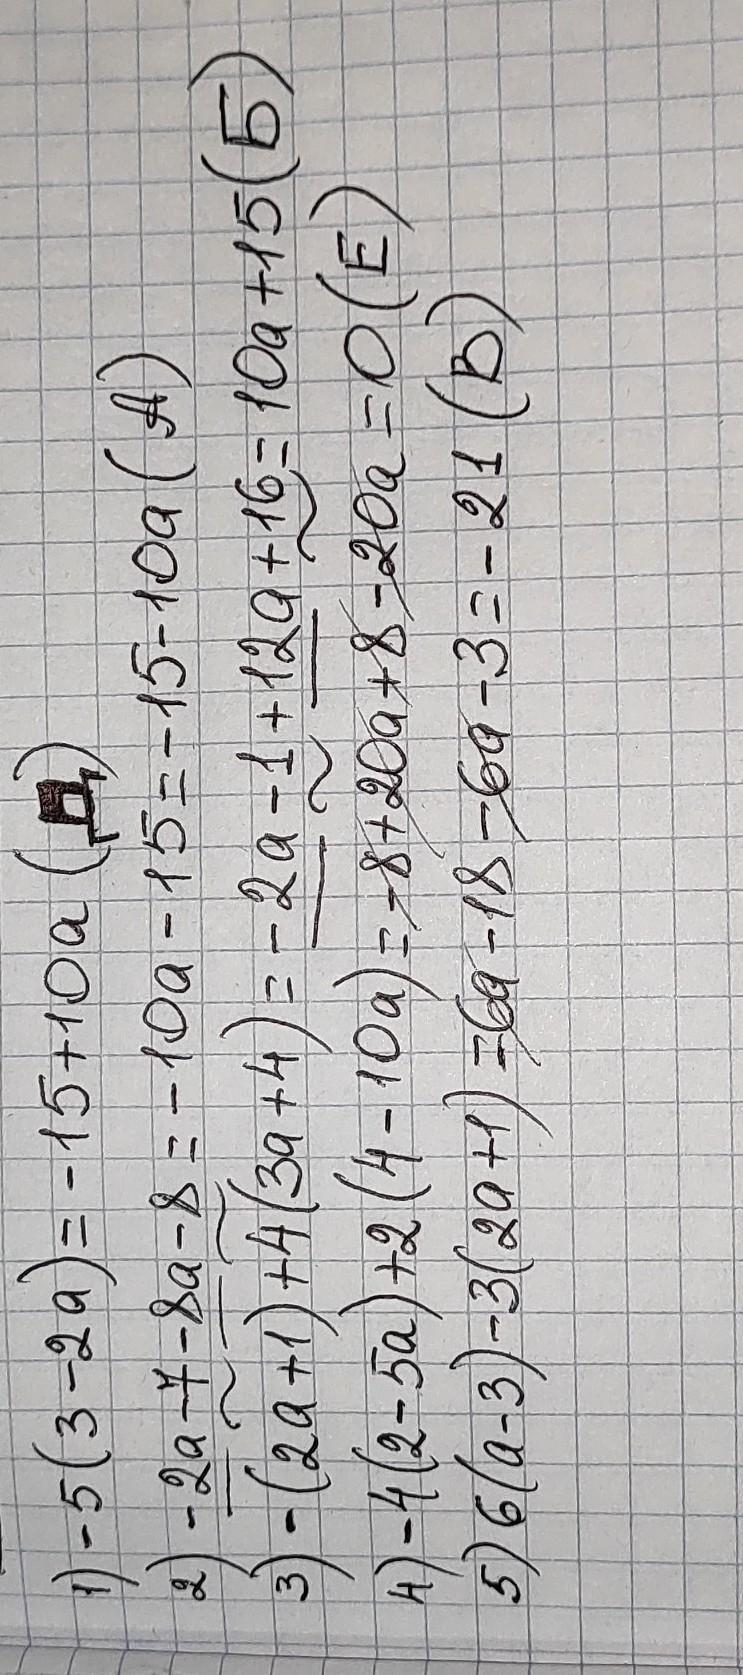 1) -5(3-2a)=-15+10a (Д)
2) -2a-7-8a-8=-10a-15=-15-10a (А)
3) -(2a+1)+4(3a+4)=-2a-1+12a+16=10a+15 (Б)
4) -4(2-5a)+2(4-10a)=-8+20a+8-20a=0 (Е)
5) 6(a-3)-3(2a+1)=6a-18-6a-3=-21 (В)